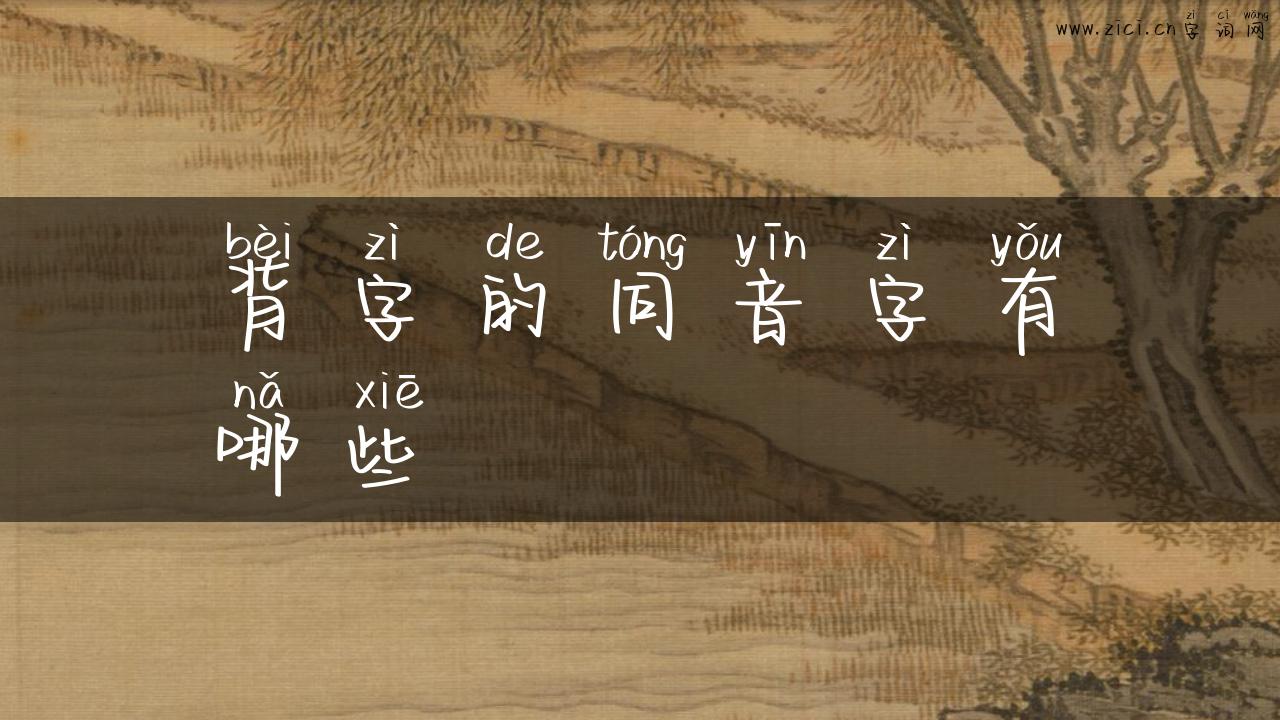 zì cí wǎng
www.zici.cn字词网
bèi zì de tóng yīn zì yǒu
背字的同音字有
nǎ xiē
哪些